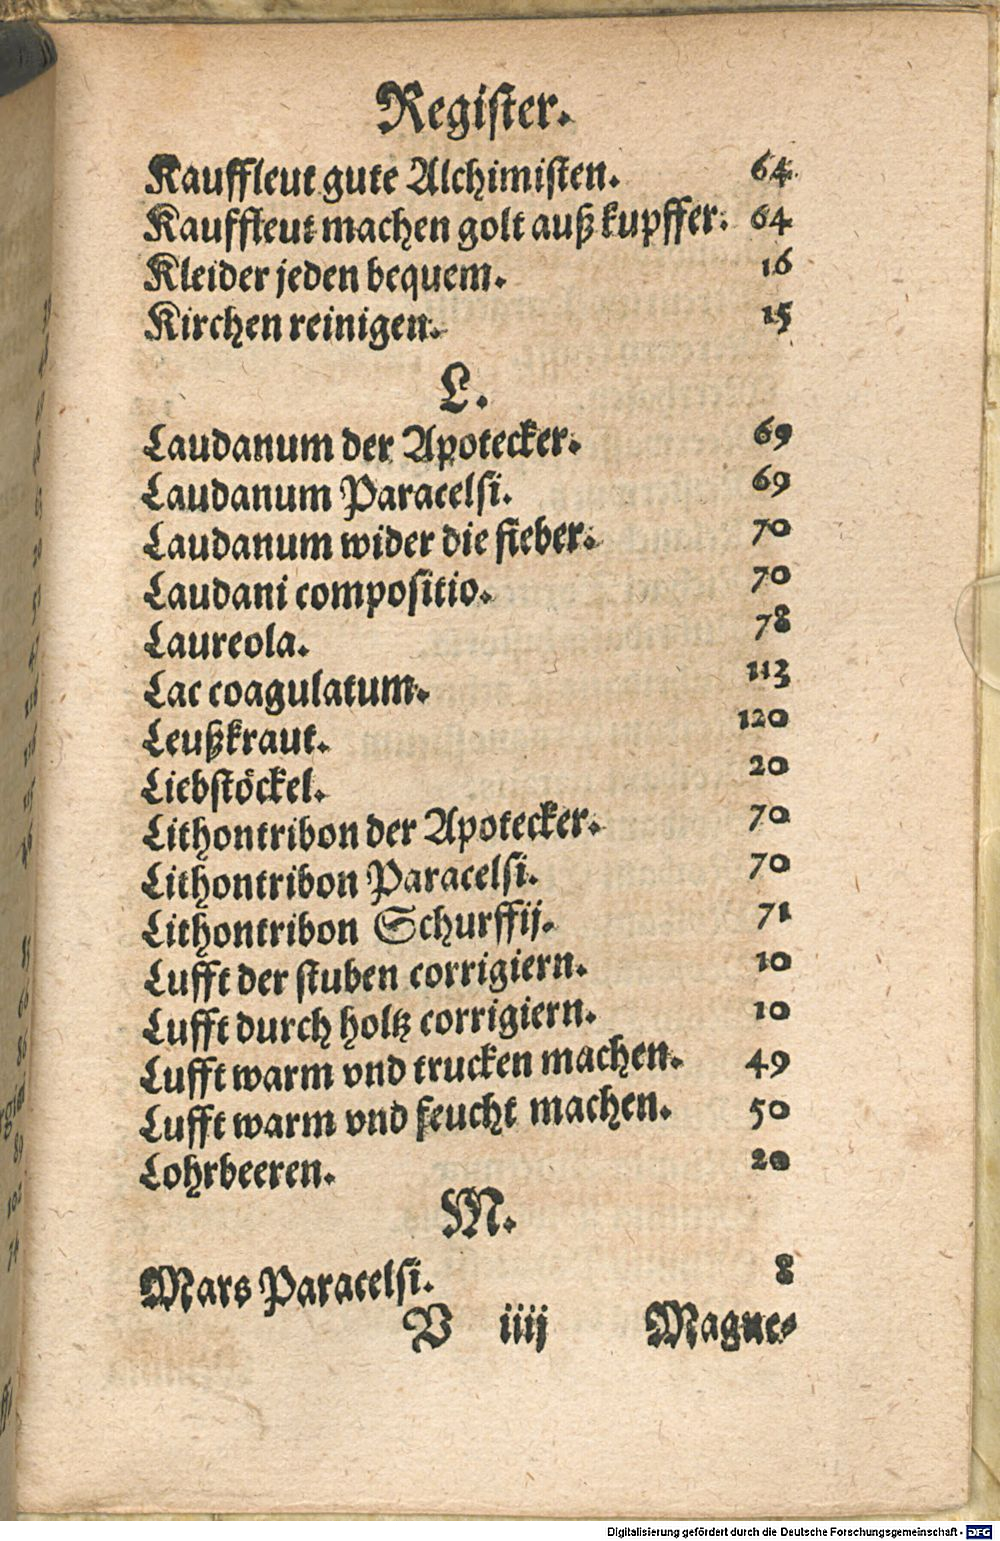 Register.
Kauffleut gute Alchimisten. 64
Kauffleut machen golt auß kupffer. 64
Kleider jeden bequem. 16
Kirchen reinigen. 15
L.
Laudanum der Apotecker. 69
Laudanum Paracelsi. 69
Laudanum wider die fieber. 70
Laudani compositio. 70
Laureola. 78
Lac coagulatum. 113
Leußkraut. 120
Liebstöckel. 20
Lithontribon der Apotecker. 70
Lithontribon Paracelsi. 70
Lithontribon Schurffij. 71
Lufft der stuben corrigiern. 10
Lufft durch holtz corrigiern. 10
Lufft warm vnd trucken machen. 49
Lufft warm vnd feucht machen. 50
Lohrbeeren. 20
M.
Mars Paracelsi. 8
V iiij Magne-
Digitalisierung gefördert durch die Deutsche Forschungsgemeinschaft - DFG